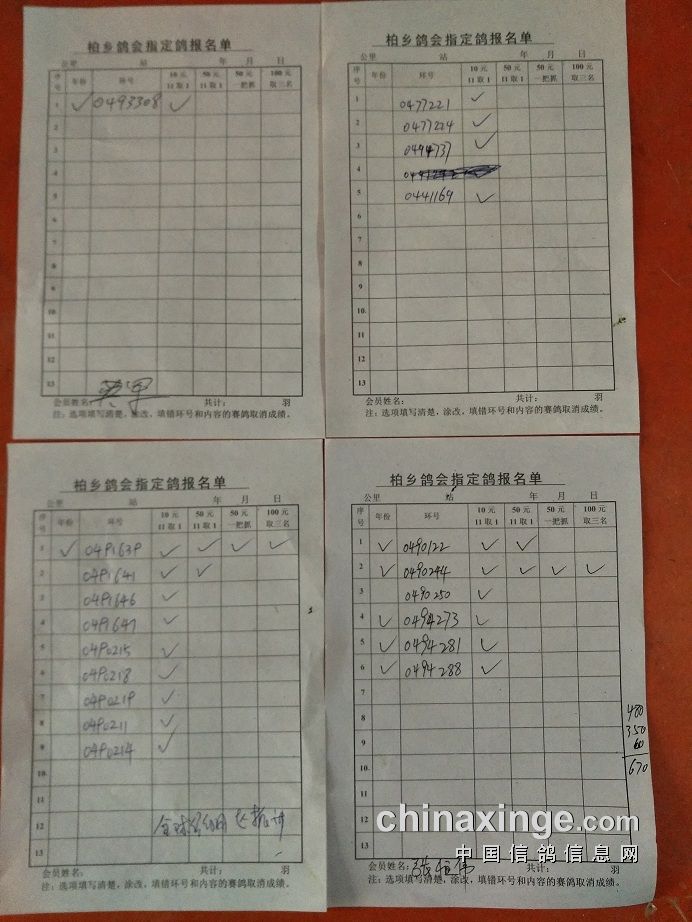 柏乡鸽会指定鸽报名单
公里 站 年 月 日
序号 年份 环号 10元 11取1 50元 11取1 50元 一把抓 100元 取三名
1 ✓ 0493308 ✓
2
3
4
5
6
7
8
9
10
11
12
13
会员姓名: 共计: 羽
注:选项填写清楚,涂改,填错环号和内容的赛鸽取消成绩。
柏乡鸽会指定鸽报名单
公里 站 年 月 日
序号 年份 环号 10元 11取1 50元 11取1 50元 一把抓 100元 取三名
1 0477221 ✓
2 0477224 ✓
3 0494737 ✓
4
5 0441169 ✓
6
7
8
9
10
11
12
13
会员姓名: 共计: 羽
注:选项填写清楚,涂改,填错环号和内容的赛鸽取消成绩。
柏乡鸽会指定鸽报名单
公里 站 年 月 日
序号 年份 环号 10元 11取1 50元 11取1 50元 一把抓 100元 取三名
1 ✓ 0491639 ✓ ✓ ✓ ✓
2 0491641 ✓ ✓
3 0491646 ✓
4 0491647 ✓
5 0490215 ✓
6 0490218 ✓
7 0490219 ✓
8 0490211 ✓
9 0490214 ✓
10
11
12
13
会员姓名: 共计: 羽
注:选项填写清楚,涂改,填错环号和内容的赛鸽取消成绩。
柏乡鸽会指定鸽报名单
公里 站 年 月 日
序号 年份 环号 10元 11取1 50元 11取1 50元 一把抓 100元 取三名
1 ✓ 0490122 ✓ ✓
2 ✓ 0490244 ✓ ✓ ✓ ✓
3 0490250 ✓
4 ✓ 0494273 ✓
5 ✓ 0494281 ✓
6 ✓ 0494288 ✓
7
8
9
10
11
12
13
480
350
60
670
会员姓名: 张恒伟 共计: 羽
注:选项填写清楚,涂改,填错环号和内容的赛鸽取消成绩。
chinaxinge.com
中国信鸽信息网